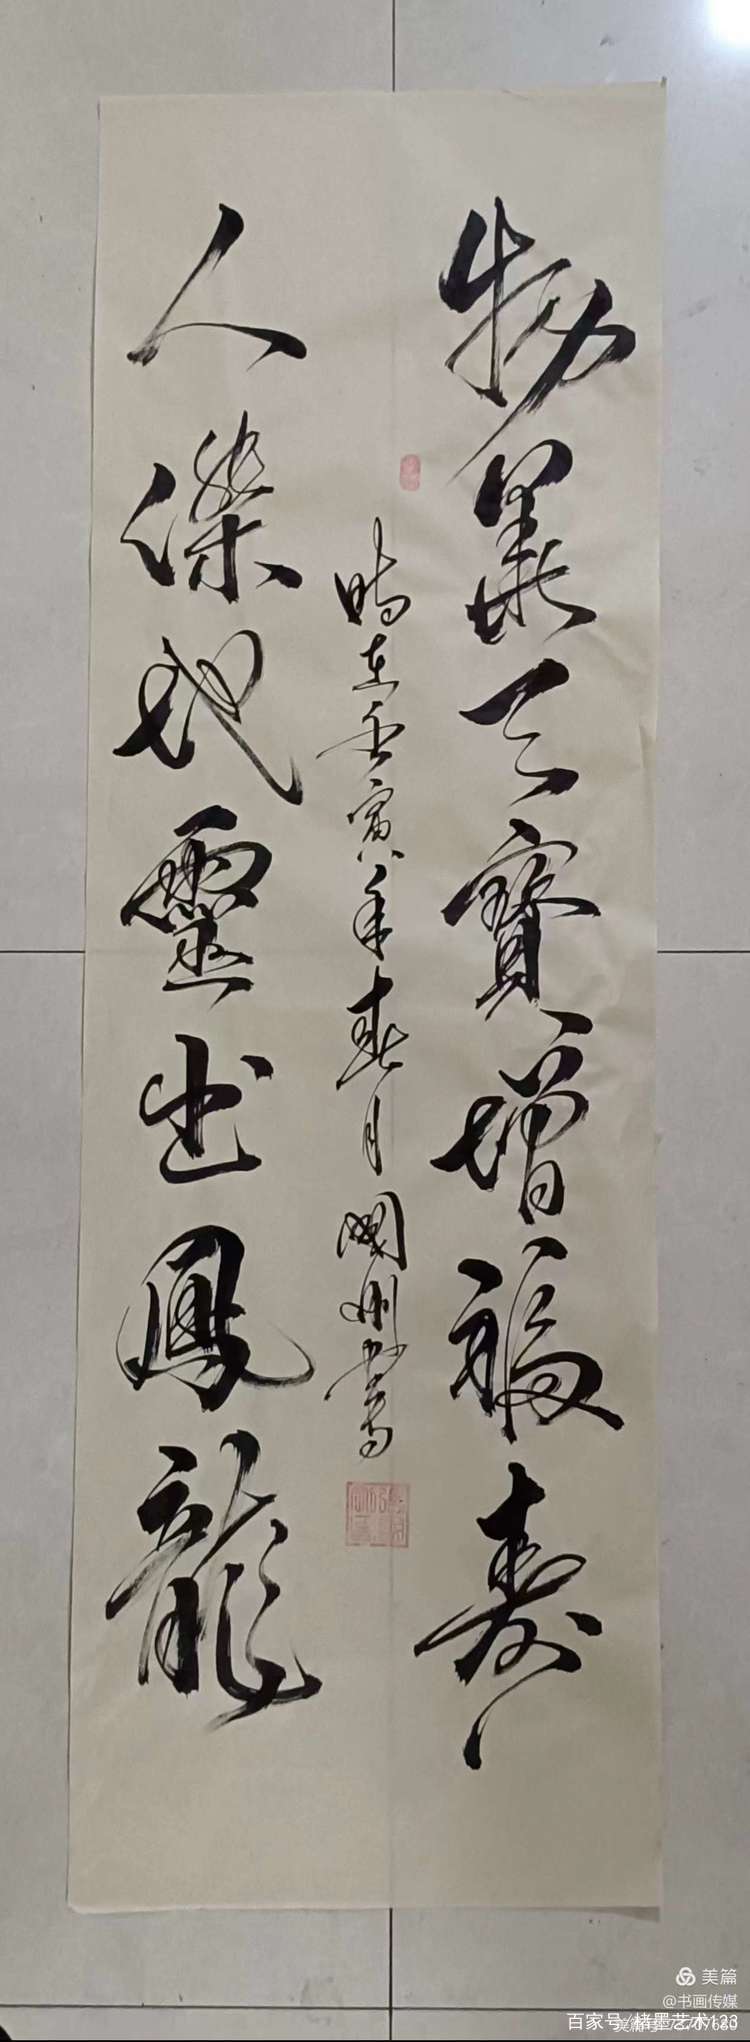 物華天寶增福壽
時在壬寅年春月國州書
人傑地靈出鳳龍
美篇
@书画传媒
百家号/楮墨艺术123